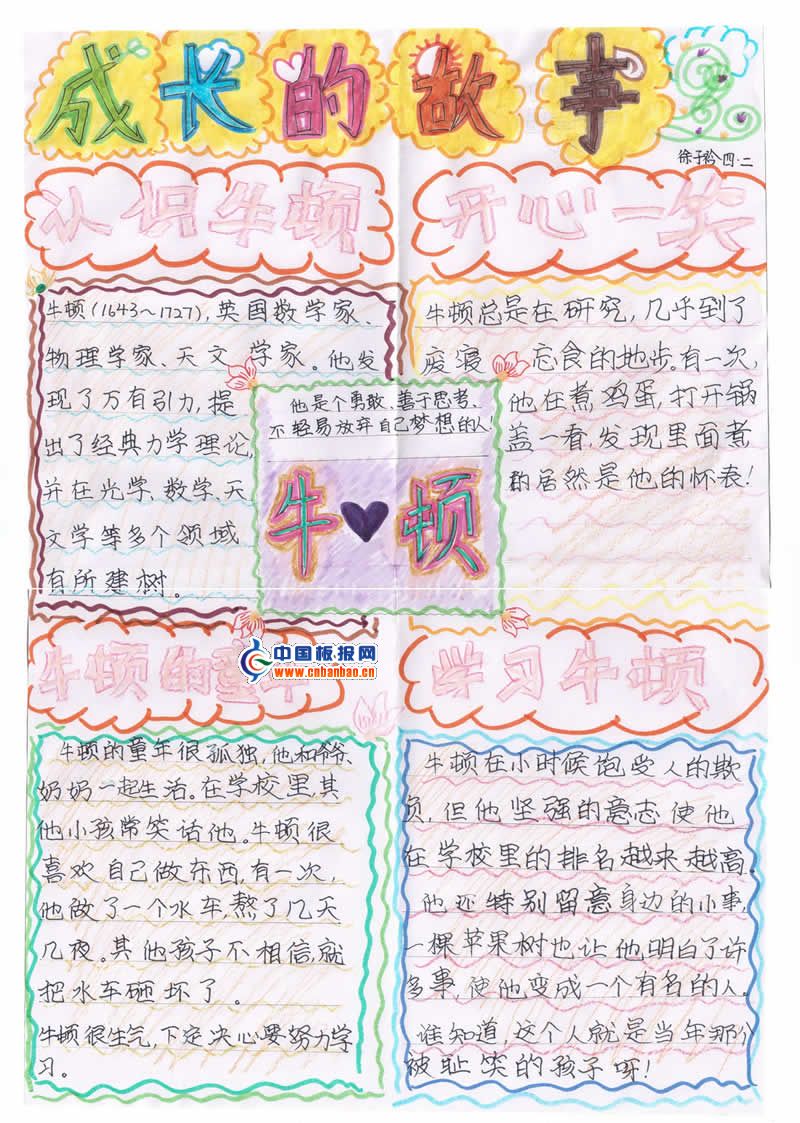 成长的故事
徐子衿 四·二
认识牛顿
牛顿(1643～1727),英国数学家、
物理学家、天文学家。他发
现了万有引力,提
出了经典力学理论,
并在光学、数学、天
文学等多个领域
有所建树。
开心一笑
牛顿总是在研究,几乎到了
废寝忘食的地步。有一次,
他在煮鸡蛋,打开锅
盖一看,发现里面煮
的居然是他的怀表!
他是个勇敢、善于思考、
不轻易放弃自己梦想的人!
牛顿
牛顿的童年
中国板报网
www.cnbanbao.cn
牛顿的童年很孤独,他和爷爷、
奶奶一起生活。在学校里,其
他小孩常笑话他。牛顿很
喜欢自己做东西,有一次,
他做了一个水车,熬了几天
几夜。其他孩子不相信,就
把水车砸坏了。
牛顿很生气,下定决心要努力学
习。
学习牛顿
牛顿在小时候饱受人的欺
负,但他坚强的意志使他
在学校里的排名越来越高。
他还特别留意身边的小事,
一棵苹果树也让他明白了许
多事,使他变成一个有名的人。
谁知道,这个人就是当年那个
被耻笑的孩子呀!